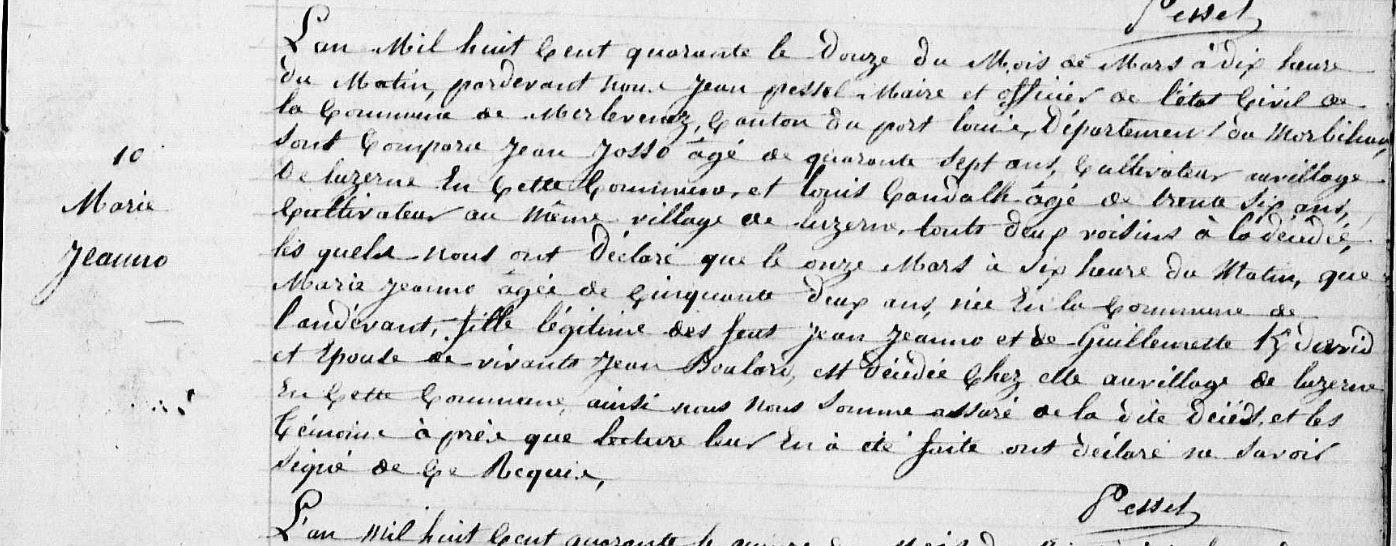 Pessel
L'an Mil huit Cent quarante le Douze du Mois de Mars à dix heure
du Matin, pardevant nous Jean pessel Maire et officier de l'état Civil de
la Commune de Merlevenez, Canton du port louis, Département du Morbihan,
sont Comparu Jean Josso âgé de quarante sept ans, Cultivateur au village
De luzerne En Cette Commune, et louis âgé de trente six ans,
Cultivateur au Même village de luzerne, touts deux voisins à la décédée,
les quels Nous ont Déclaré que le onze Mars à six heure du Matin, que
Marie Jeanno âgée de Cinquante deux ans, née En la Commune de
landévant, fille légitime des feut Jean Jeanno et de Guillemette K/david
et Epouse de vivants Jean, est décédée Chez elle au village de luzerne
En Cette Commune, ainsi nous nous somme assuré de la dite décéd, et les
témoins après que lecture leur En à été faite ont déclaré ne savoir
signé de Ce Requis,
10
Marie
Jeanno
Pessel
L'an Mil huit Cent quarante le